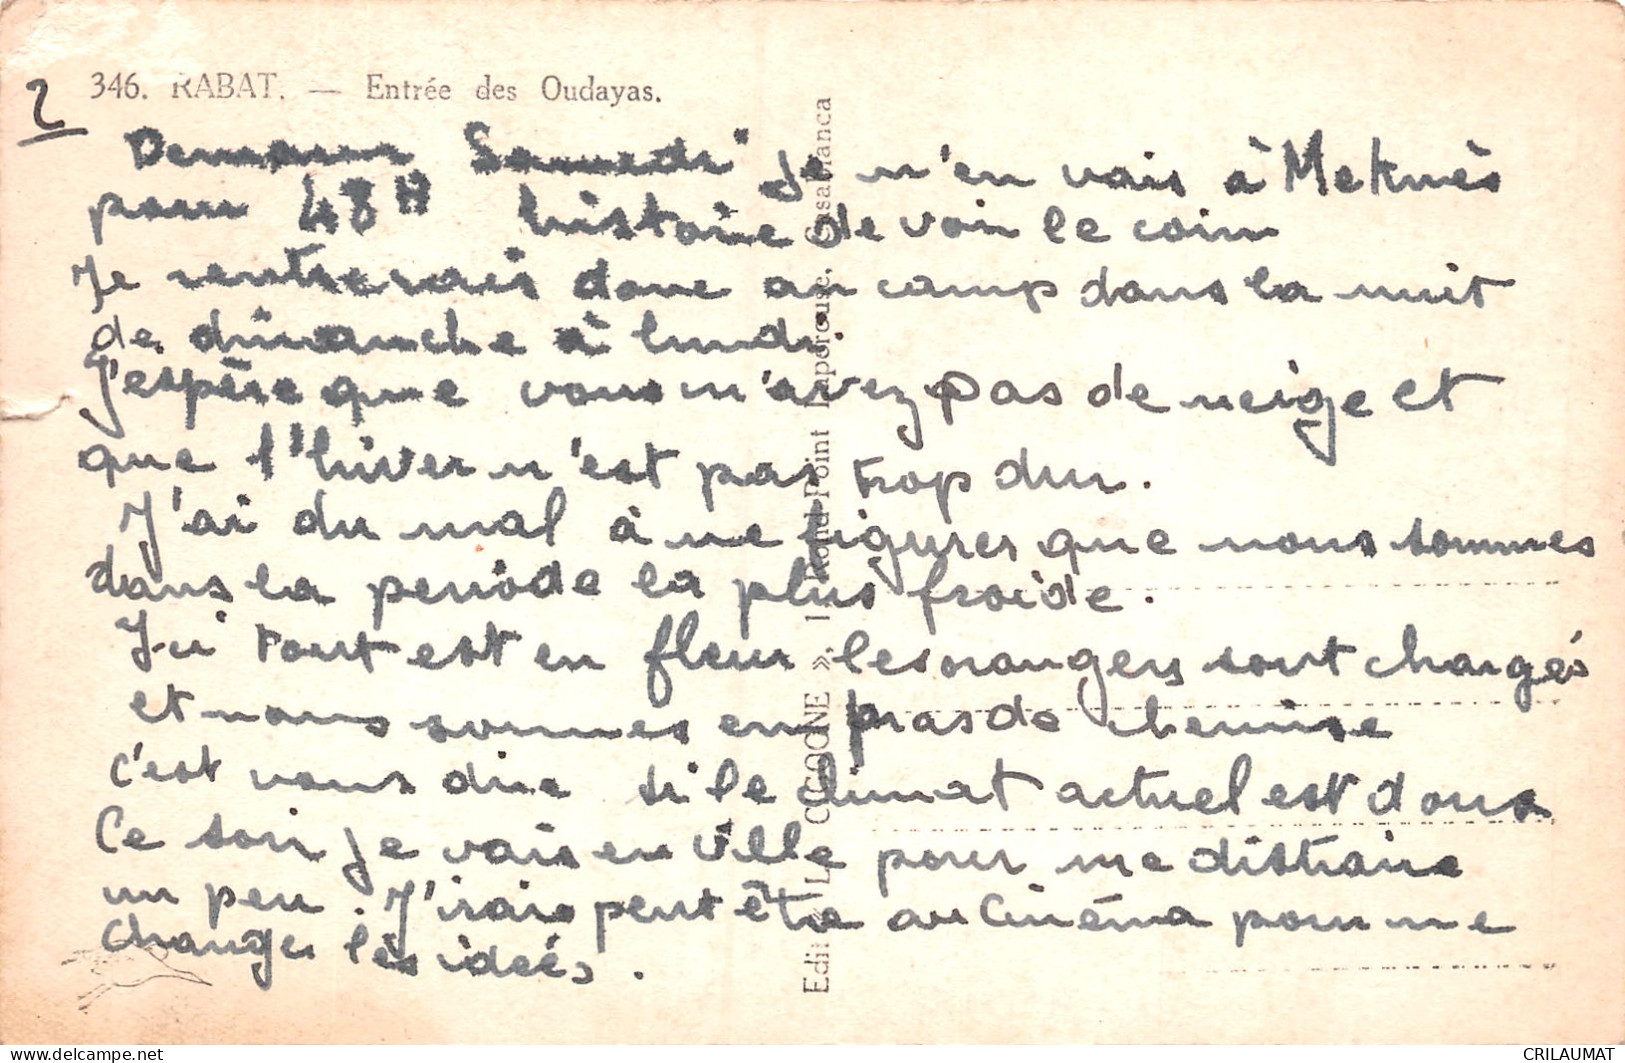 2
346. RABAT. — Entrée des Oudayas.
Demain Samedi je m'en vais à Meknès
pour 48H histoire de voir le coin
Je rentrerais donc au camp dans la nuit
de dimanche à lundi.
J'espère que vous n'avez pas de neige et
que l'hiver n'est pas trop dur.
J'ai du mal à me figurer que nous sommes
dans la periode la plus froide.
Ici tout est en fleur les orangers sont chargés
et nous sommes en bras de chemise
c'est vous dire si le climat actuel est doux
Ce soir je vais en ville pour me distraire
un peu. J'irais peut être au Cinéma pour me
changer les idées.
LA CIGOGNE ». Rond-Point Lapeyrouse. Casablanca
CRILAUMAT